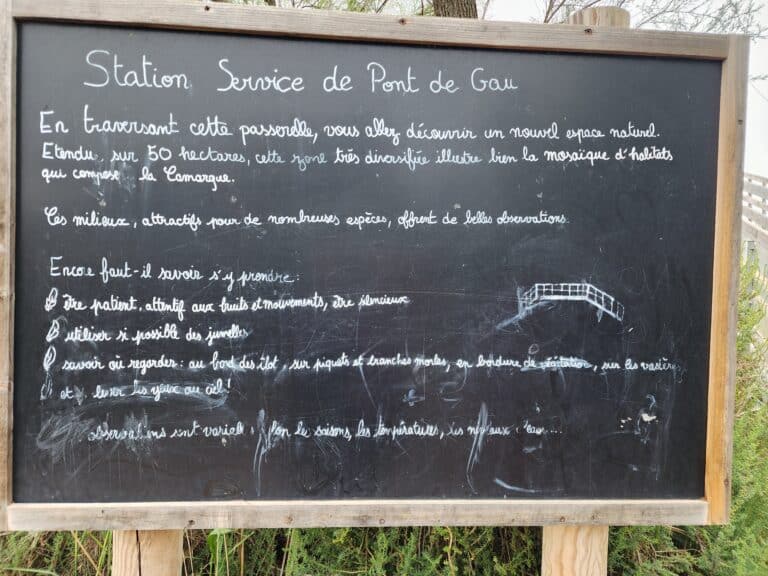 Station Service de Pont de Gau
En traversant cette passerelle, vous allez découvrir un nouvel espace naturel.
Etendu sur 50 hectares, cette zone très diversifiée illustre bien la mosaïque d'habitats
qui compose la Camargue.
Ces milieux, attractifs pour de nombreuses espèces, offrent de belles observations.
Encore faut-il savoir s'y prendre :
être patient, attentif aux bruits et mouvements, être silencieux
utiliser si possible des jumelles
savoir où regarder : au bord des îlot, sur piquets et branches mortes, en bordure de végétation, sur les vasières
et lever les yeux au ciel !
observations sont variables les saisons, les températures, les niveaux